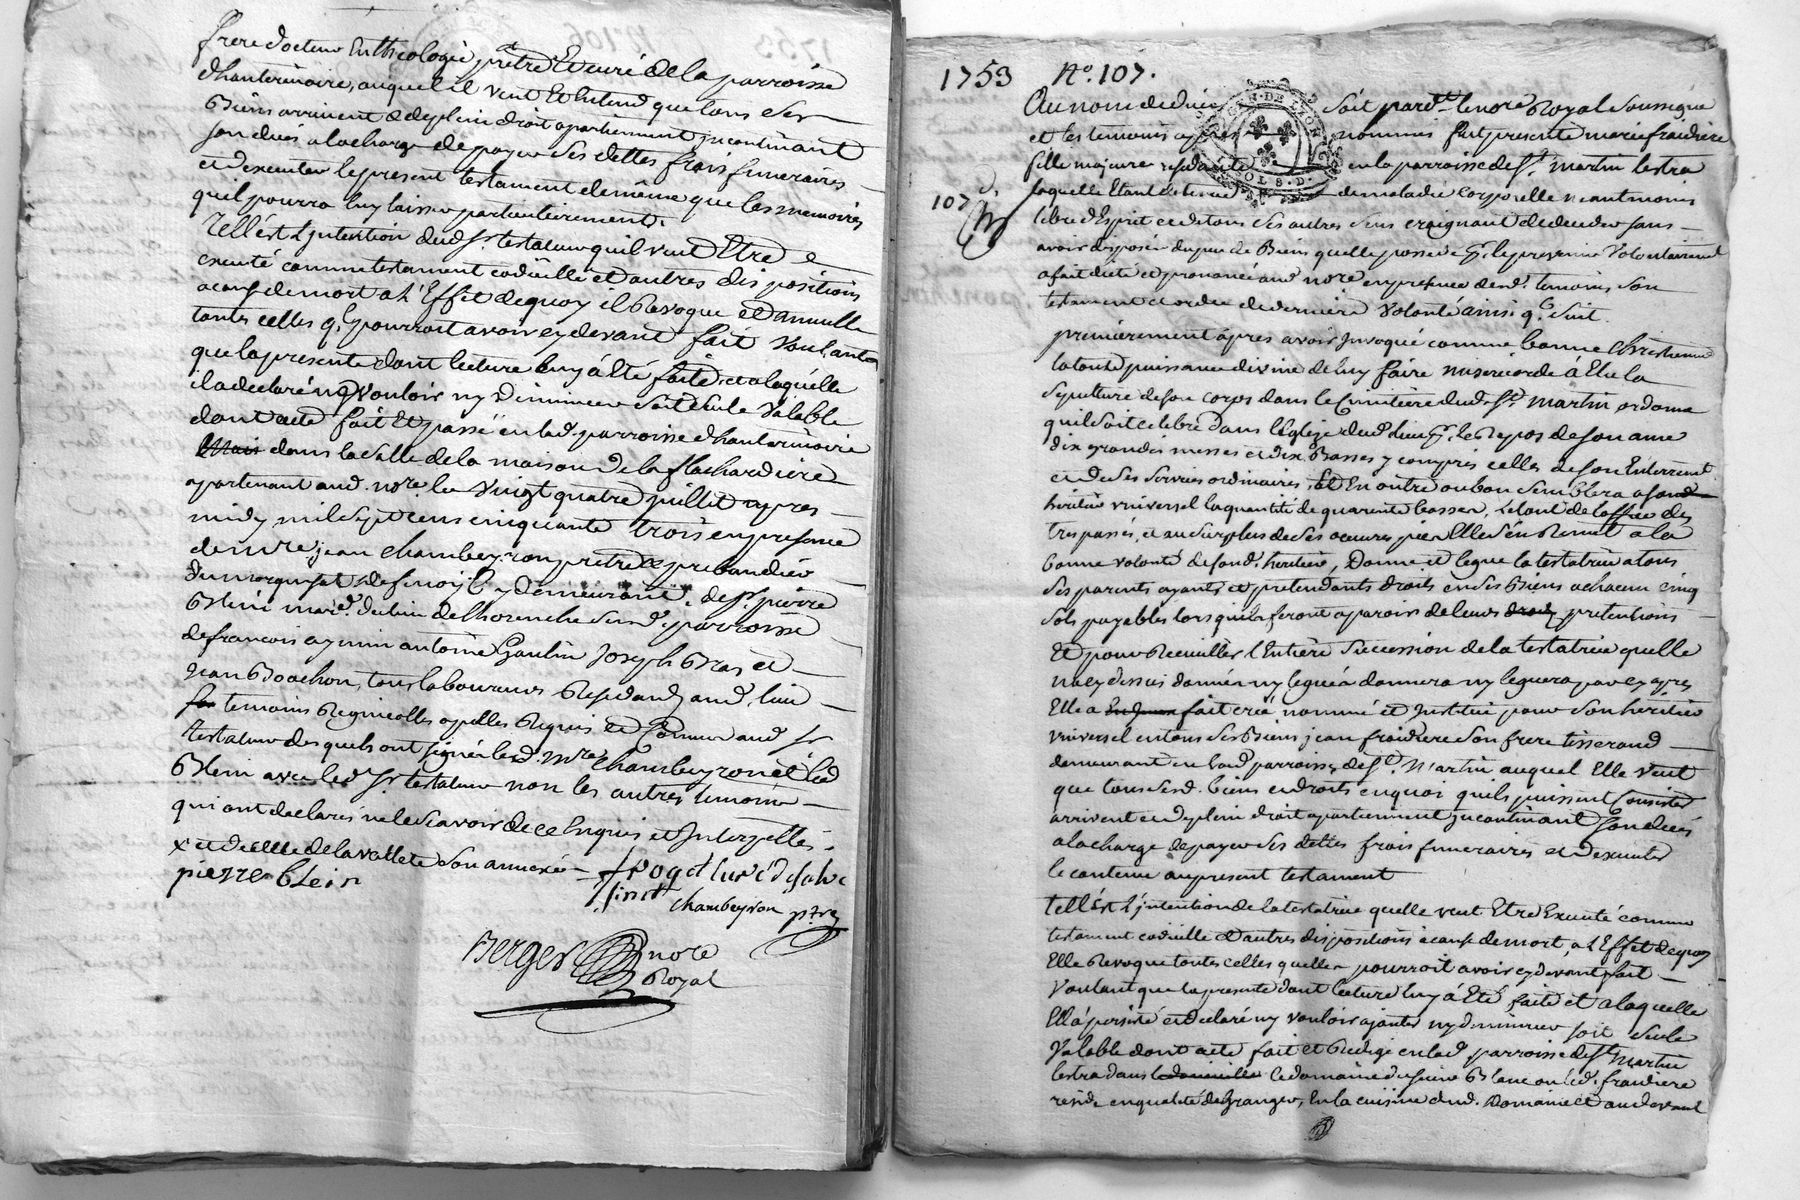 frere docteur En theologie prètre Et curé de la parroisse
d'hauterivoire, auquel il veut Et Entend que tous ses
Biens arrivent & de plein droit apartiennent jncontinant
son decés a la charge de payer ses dettes frais funeraires
et d'executer le present testament de même que les memoires
quel pourra luy laisser particulierement.
Tell ést L'jntention dud sr. testateur qu'il veut Etre e
xecuté comme testament codicille et d'autres dispositions
a cause de mort a L'Effet de quoy il Revoque et annulle
toutes celles q'l pourroit avoir cy devant fait Voulant
que la presente dont lecture luy á Eté faite, et a laquelle
il a declaré ny Vouloir ny diminuer soit seule Valable
dont acte fait Et passé en lad. parroisse d'hauterivoire
dans la salle de la maison de la flachardiere
apartenant aud. nore. le Vingt quatre juillet apres
midy mil sept cens cinquante trois en presence
de mre. jean Chambeyron prètre & prebandier
demeurant, de sr. pierre
Blein mard. du lieu de Thorenche susd. parroisse
de francois aymin antoine Gaulin Joseph Bras et
jean Boachon, tous laboureurs Residants aud. lieu
temoins Regnicolles apellés Requis et Connus aud sr
testateur desquels ont signé led. mre Chambeyron et led
Blein avec led sr. testateur non les autres temoins
qui ont declarés ne le scavoir de ce Enquis et Jnterpellés.
x et de celle de la vallete son annexé
pierre blein
Chambeyron ptre
Berger nore
Royal
1753 No. 107.
Au nom de dieu soit pard't le nore Royal soussigné
et les temoins apres nommés fut presente marie fraidiere
fille majeure residante en la parroisse de st. martin lestra
107
laquelle Etant detenue de maladie corporelle neantmoins
libre d'Esprit et de tous ses autres sens craignant de deceder sans
avoir disposer du peu de Biens quelle possede pr. le prevenir Volontairement
a fait dicté et prononcé aud nore. en presence desd. temoins son
testament et ordre de derniere Volonté ainsi q. suit.
premierement ápres avoir Jnvoqué comme bonne Chretienne
la toute puissance divine de luy faire misericorde á Elu la
sepulture de son corps dans le Cimitiere dud. st. martin, ordonne
quil soit celebré dans l'Eglize dud. lieu pr. le Repos de son ame
dix grandes messes et dix Basses y compris celles de son Enterrement
et de ses services ordinaires, Et En outre ou bon semblera a sond
héritier vniversel la quantité de quarente basses, le tout de l'office des
trespassés, et au surplus de ses oeuvres pies Elle s'en Remet a la
bonne volonté de sond. heritier, Donne et legue la testatrice a tous
ses parents ayants et pretendants droits en ses Biens a chacun cinq
sols payables lorsquils feront aparoir de leurs droits pretentions
Et pour Recuillir l'Entiere Succession de la testatrice quelle
na cy dessus donnée ny leguée á donnera ny leguera par cy apres
Elle a fait creé nommé et Jnstitué pour son heritier
vniversel en tous ses Biens jean fraidiere son frere tisserand
demeurant en lad parroisse de st. Martin auquel Elle veut
que tous sesd. biens et droits en quoi quils puissent consister
arrivent et de plein droit apartiennent jncontinant son decés
a la charge de payer ses dettes frais funeraires et d'executer
le contenu au present testament
tell ést L'jntention de la testatrice quelle veut Etre Executé comme
testament codicille et d'autres dispositions a cause de mort, a L'Effet de quoy
Elle Revoque toutes celles quelle pourroit avoir cy devant fait
Voulant que la presente dont lecture luy á Eté faite et a laquelle
Ell'á persisté et declaré ny vouloir ajouter ny diminuer soit seule
Valable dont acte fait et Redigé en lad parroisse de st. martin
lestra dans le domaine du sieur Blanc ou led. fraidiere
reside en qualité de Granger, En la cuisine dud. Domaine Et au devant